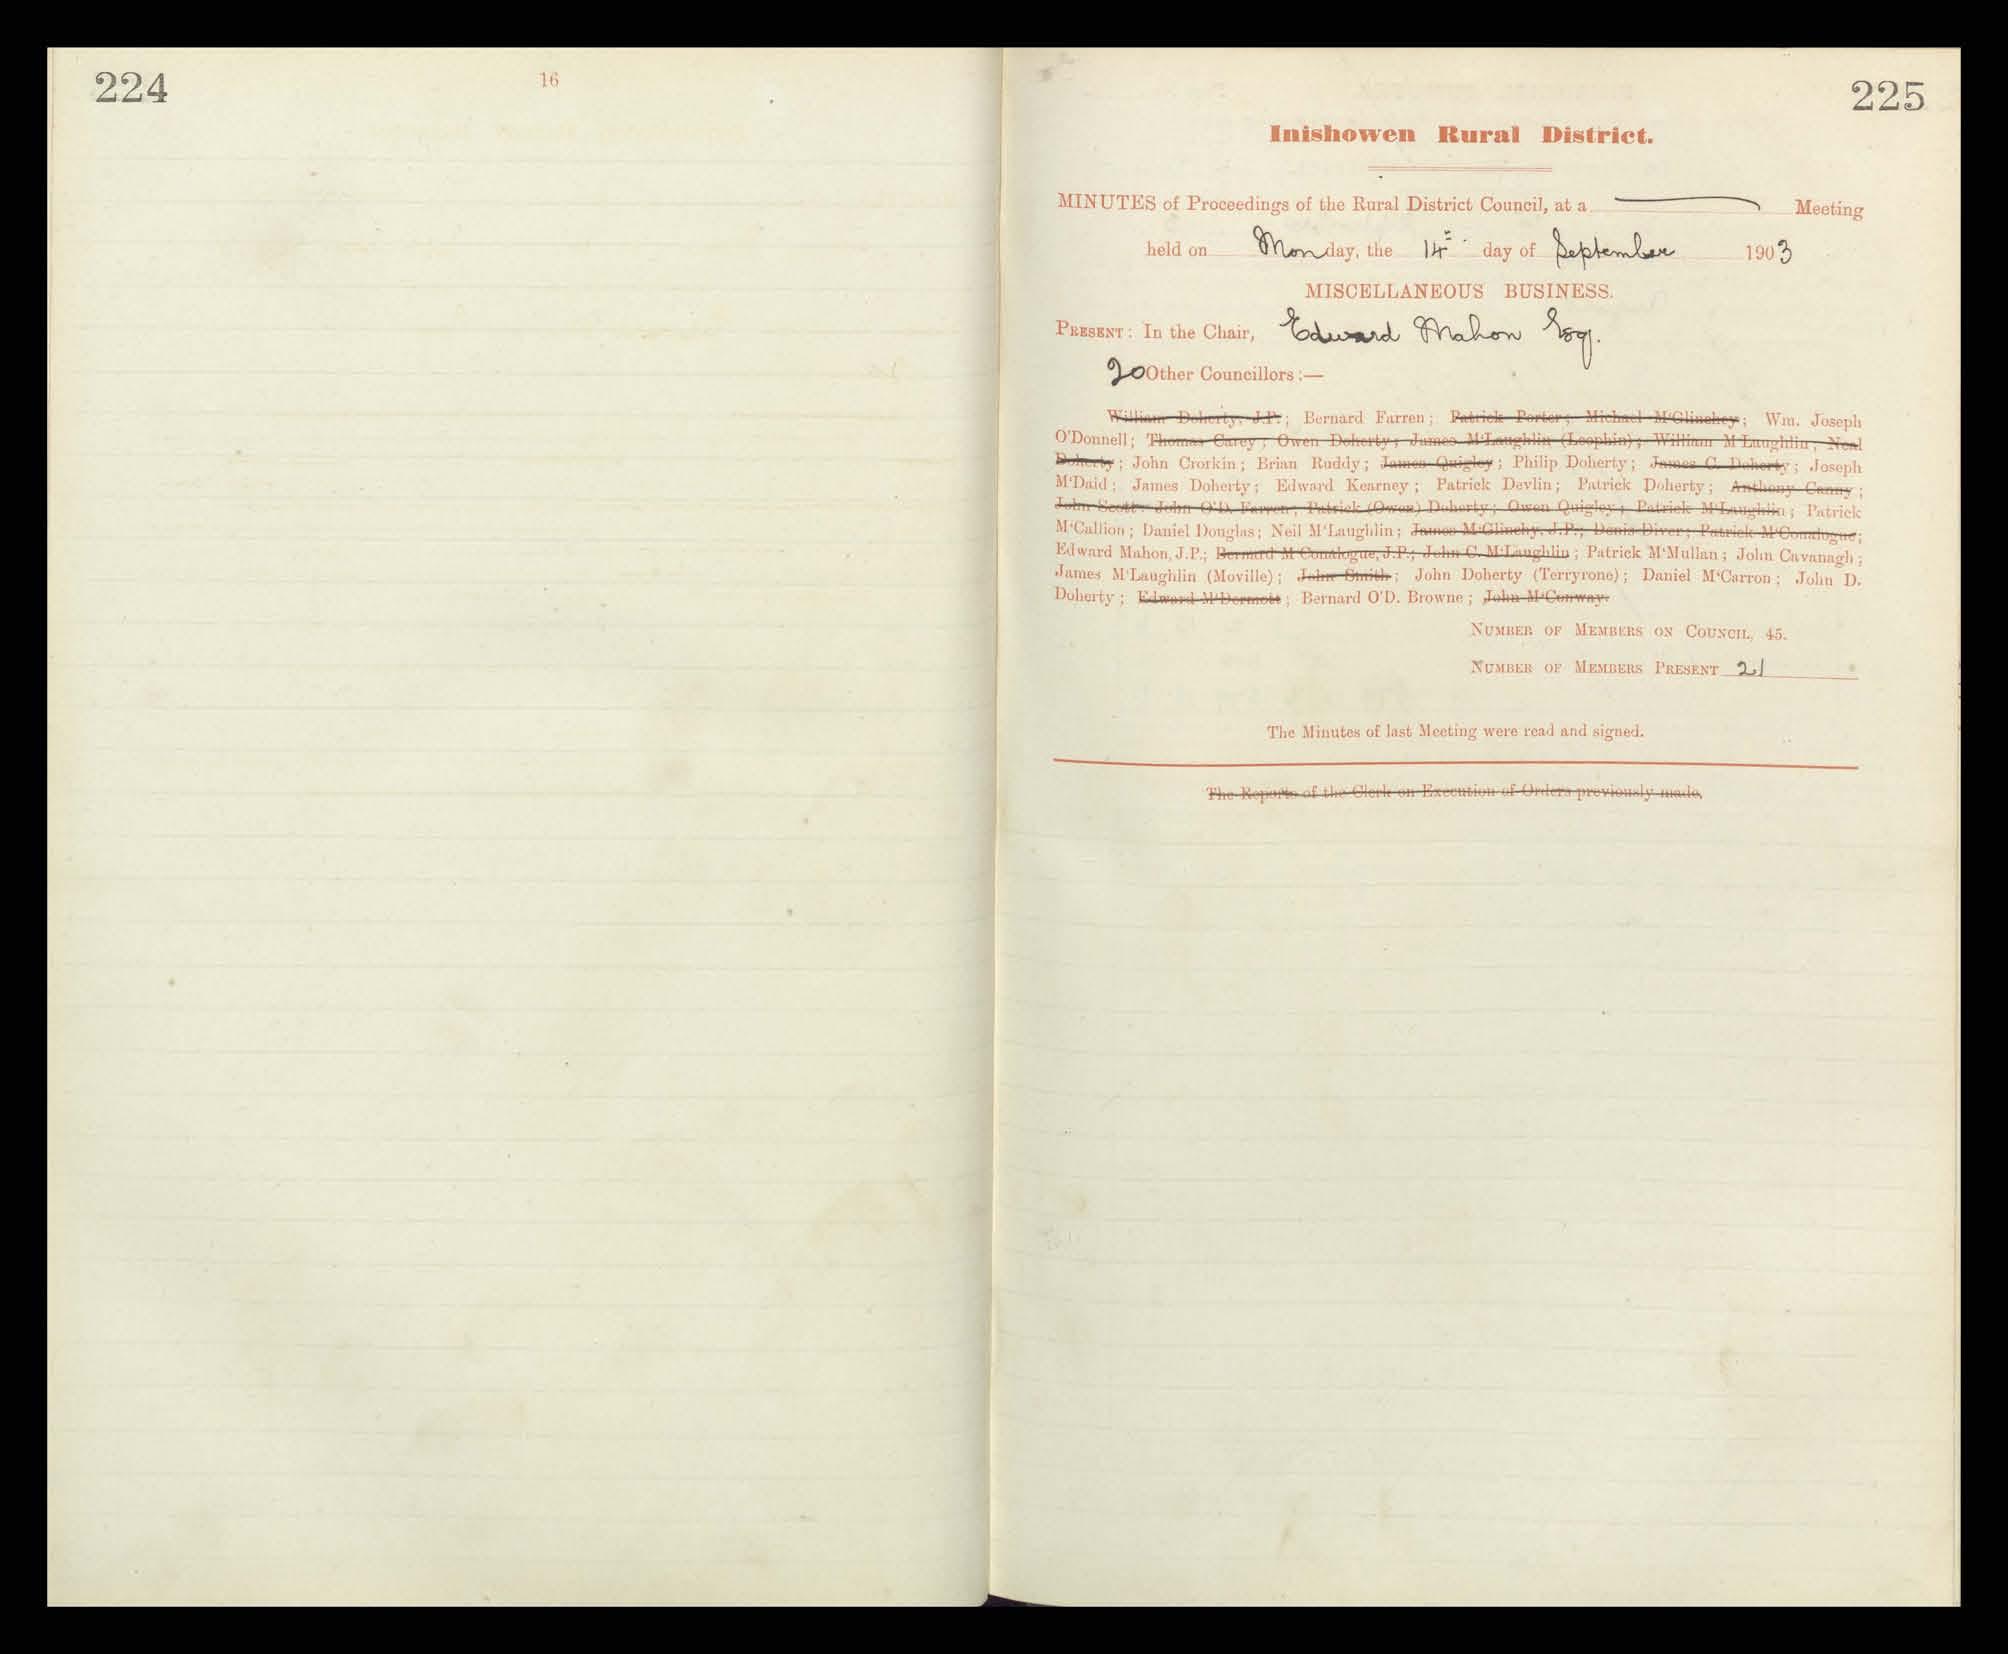 224
16
225
Inishowen Rural District.
MINUTES of Proceedings of the Rural District Council, at a Meeting
held on Monday, the 14= day of September 1903
MISCELLANEOUS BUSINESS.
PRESENT: In the Chair, Edward Mahon Esq.
20 Other Councillors:—
William Doherty, J.P.; Bernard Farren; Patrick Porter; Michael M'Glinchey; Wm. Joseph
O'Donnell; Thomas Carey; Owen Doherty; James M'Laughlin (Leophin); William M'Laughlin; Neal
Doherty; John Crorkin; Brian Ruddy; James Quigley; Philip Doherty; James C. Doherty; Joseph
M'Daid; James Doherty; Edward Kearney; Patrick Devlin; Patrick Doherty; Anthony Canny;
John Scott; John O'D. Farren; Patrick (Owen) Doherty; Owen Quigley; Patrick M'Laughlin; Patrick
M'Callion; Daniel Douglas; Neil M'Laughlin; James M'Glinchy, J.P.; Denis Diver; Patrick M'Conalogue;
Edward Mahon, J.P.; Bernard M'Conalogue, J.P.; John C. M'Laughlin; Patrick M'Mullan; John Cavanagh;
James M'Laughlin (Moville); John Smith; John Doherty (Terryrone); Daniel M'Carron; John D.
Doherty; Edward M'Dermott; Bernard O'D. Browne; John M'Conway.
NUMBER OF MEMBERS ON COUNCIL, 45.
NUMBER OF MEMBERS PRESENT 21
The Minutes of last Meeting were read and signed.
The Reports of the Clerk on Execution of Orders previously made.